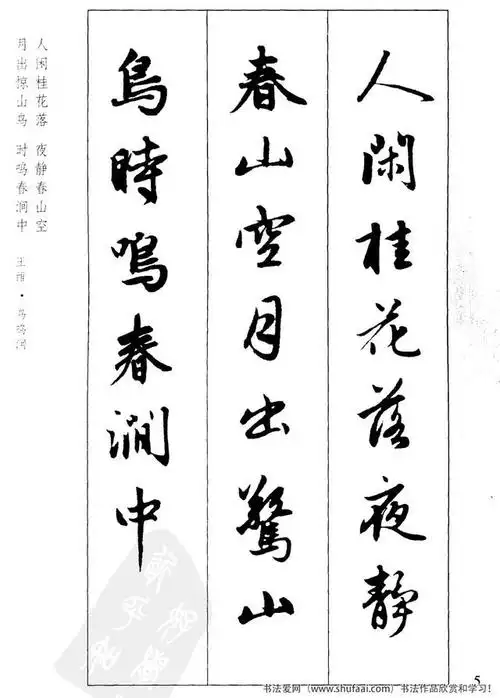 人閑桂花落夜靜
春山空月出驚山
鳥時鳴春澗中
人闲桂花落 夜静春山空
月出惊山鸟 时鸣春涧中 王维·鸟鸣涧
5
书法爱网（www.shufaai.com）书法作品欣赏和学习!